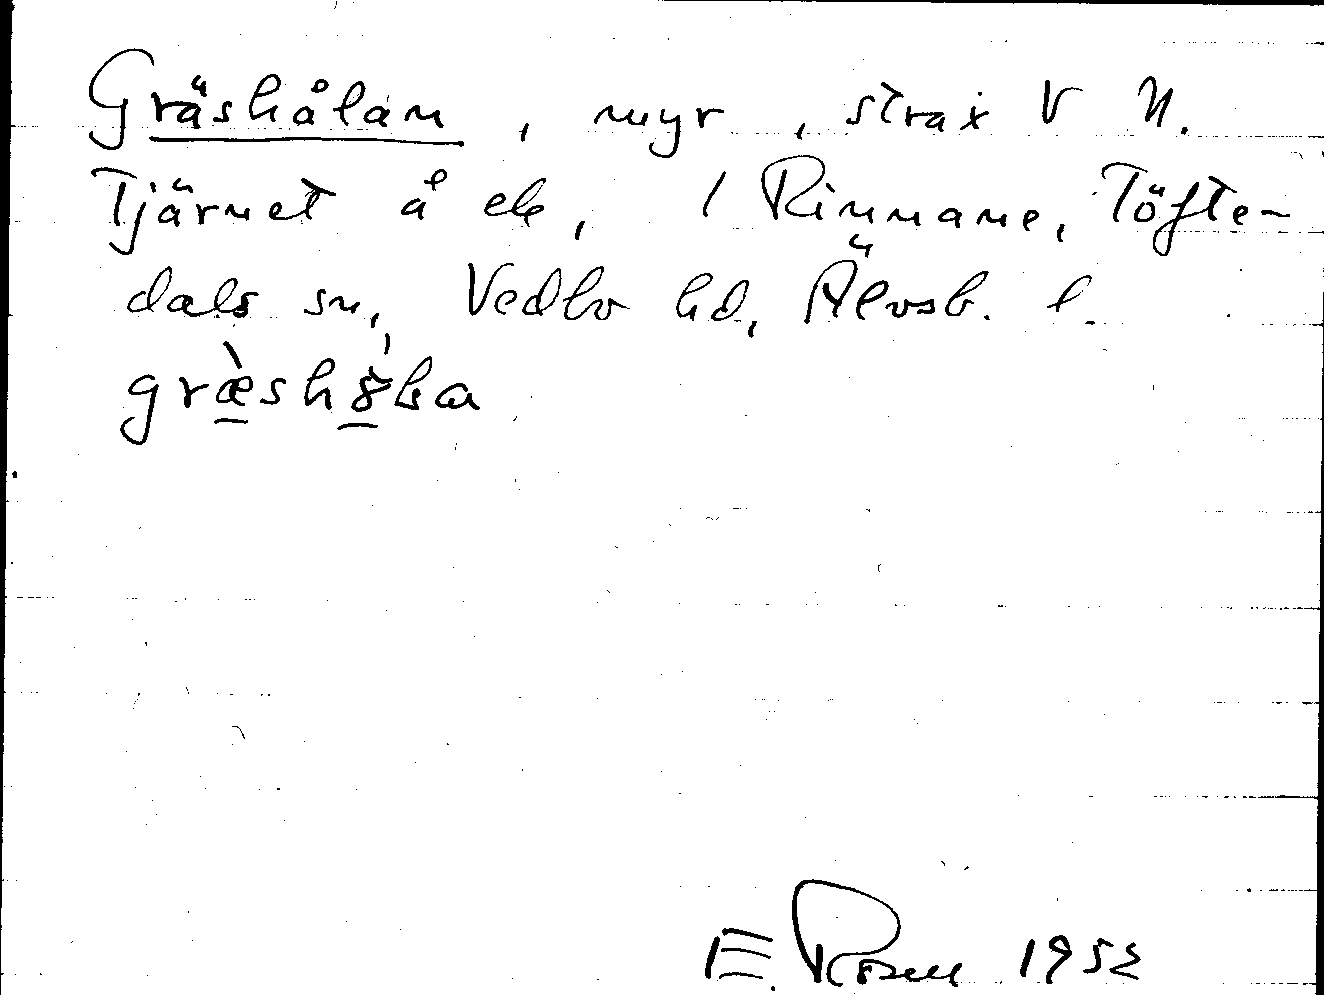 Gräshålan, myr, strax V N.
Tjärnet å ek, 1 Rinnane, Töfte-
dals sn, Vedbo hd, Älvsb. l.
E. Rosell 1952